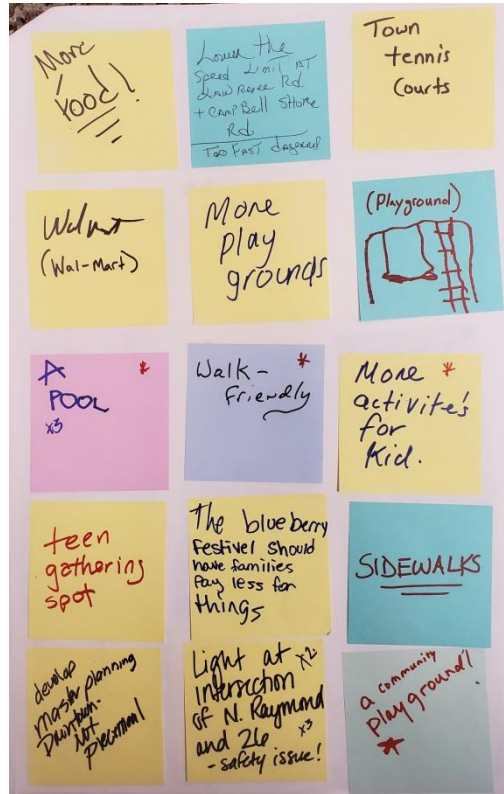 More
food!
Lower the
Speed Limit AT
Lawrence Rd
+ Campbell Shore
Rd
Too Fast
Town
tennis
Courts
Walmart
(Wal-Mart)
More
play
grounds
(Playground)
A *
POOL
x3
Walk- *
Friendly
More *
activite's
for
Kid.
teen
gathering
spot
The blueberry
Festival should
have families
Pay less for
things
SIDEWALKS
develop
Master planning
Downtown.
Not
piecemeal
Light at x2
intersection
of N. Raymond
and 26 x3
- safety issue!
a community
playground!
*